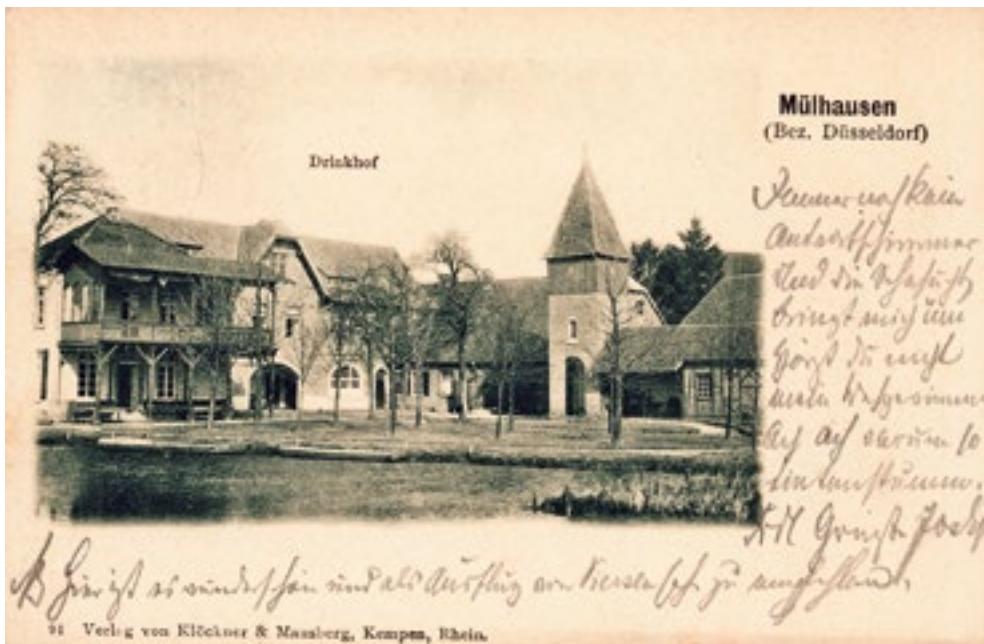 Mülhausen
(Bez. Düsseldorf)
Drinkhof
Immer noch kein
Antwortschimmer
Und die Sehnsucht
bringt mich um
Hörst du nicht
mein Wehgewimmer
Ach ach warum so
tintenstumm.
Josef
Hier ist es wunderschön und als Ausflug von zu empfehlen.
91 Verlag von Klöckner & Mausberg, Kempen, Rhein.